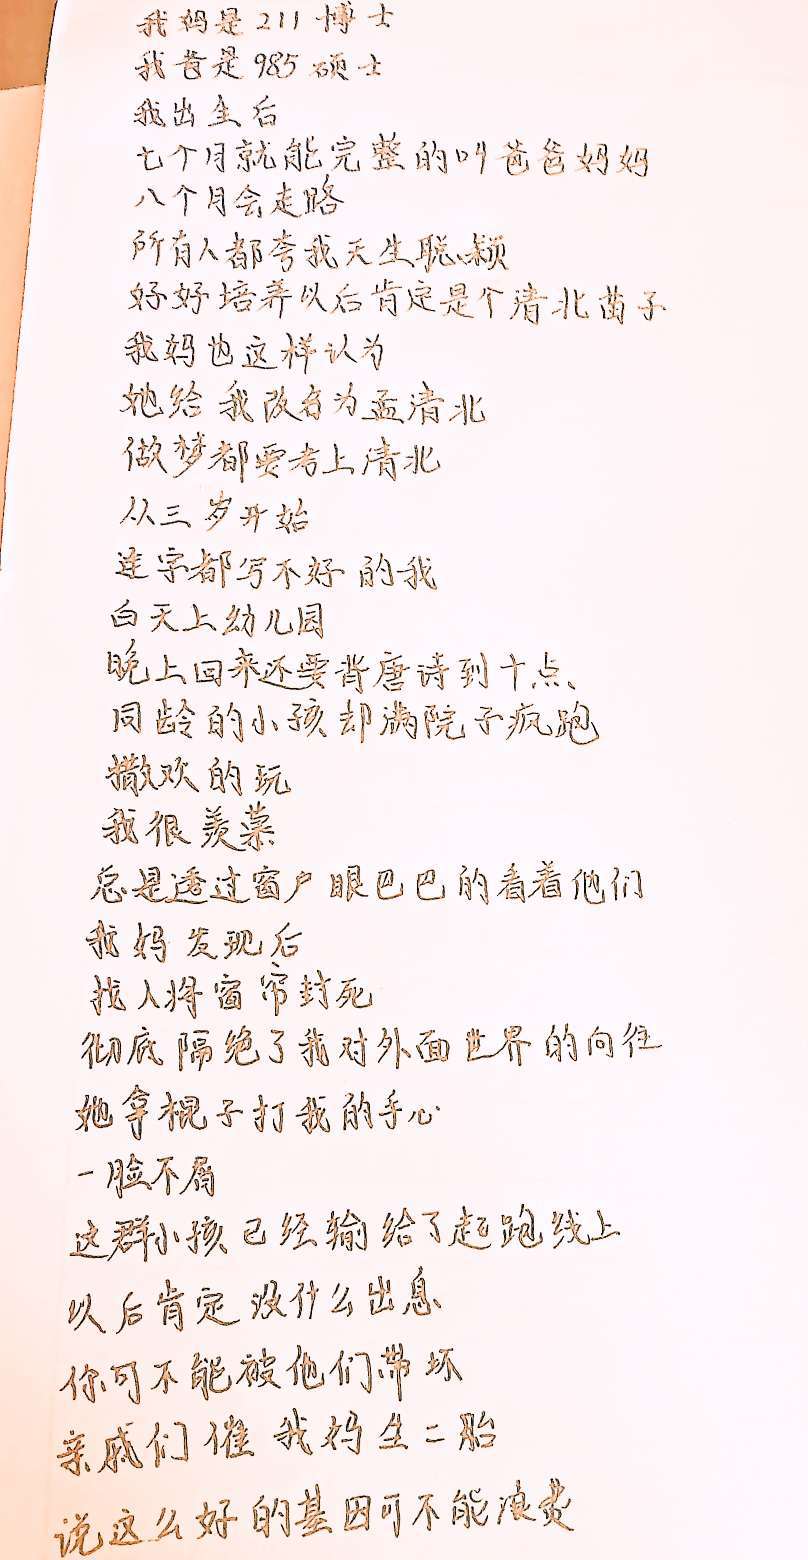 我妈是211博士
我爸是985硕士
我出生后
七个月就能完整的叫爸爸妈妈
八个月会走路
所有人都夸我天生聪颖
好好培养以后肯定是个清北苗子
我妈也这样认为
她给我改名为孟清北
做梦都要考上清北
从三岁开始
连字都写不好的我
白天上幼儿园
晚上回来还要背唐诗到十点
同龄的小孩却满院子疯跑
撒欢的玩
我很羡慕
总是透过窗户眼巴巴的看着他们
我妈发现后
找人将窗帘封死
彻底隔绝了我对外面世界的向往
她拿棍子打我的手心
一脸不屑
这群小孩已经输给了起跑线上
以后肯定没什么出息
你可不能被他们带坏
亲戚们催我妈生二胎
说这么好的基因可不能浪费